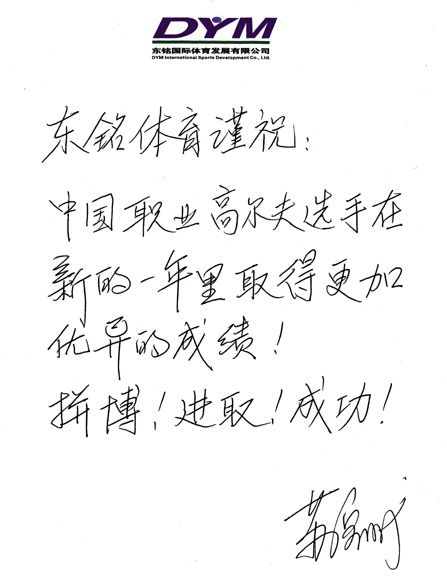 DYM
东铭国际体育发展有限公司
DYM International Sports Development Co., Ltd.
东铭体育谨祝：
中国职业高尔夫选手在
新的一年里取得更加
优异的成绩！
拼博！进取！成功！